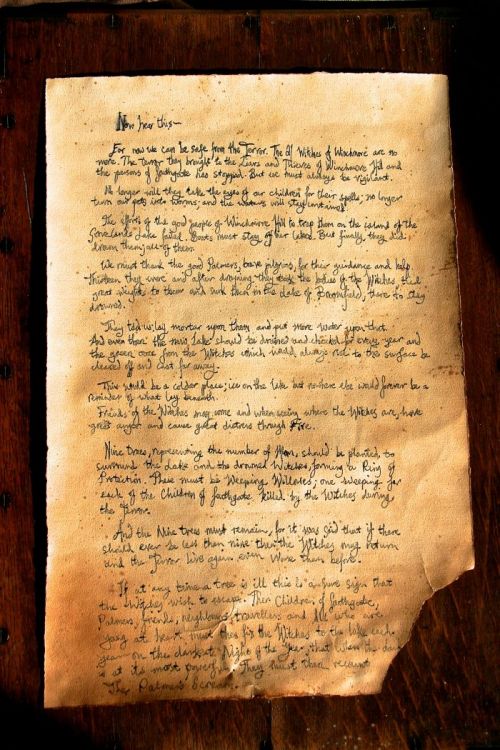 Now hear this~
For now we can be safe from the Terror. The Ol Witches of Winchmore are no
more. The terror they brought to the Liars and Thieves of Winchmore Hill and
the persons of fouthgate has stopped. But we must always be vigilant.
No longer will they take the eyes of our children for their spells; no longer
turn our pets into worms; and the waters will stay
The efforts of the good people of Winchmore Hill to trap them on the island of the
Lake failed. Boats must stay of her lakes. But finally, they did
drown them; all of them.
We must thank the good Palmers, brave pilgrims, for their guidance and help.
Thirteen they were and after drowning they the bodies of the Witches, tied
great weights to them and sunk them in the lake of Broomfield, there to stay
drowned.
They told us lay mortar upon them and put more water upon that.
And even then the new Lake should be drained and checked for every year and
the green ooze from the Witches which would always rise to the surface be
cleared off and cast far away.
This would be a colder place; ice on the lake but nowhere else would forever be a
reminder of what lay beneath.
Friends of the Witches may come and when seeing where the Witches are, have
great anger and cause great distress through Fire.
Nine trees, representing the number of Moon, should be planted to
surround the Lake and the drowned Witches, forming a Ring of
Protection. These must be Weeping Willows; one weeping for
each of the Children of fouthgate killed by the Witches during
the Terror.
And the Nine trees must remain, for it was said that if there
should ever be less than nine then the Witches may return
and the Terror live again even worse than before.
If at any time a tree is ill this is a sure sign that
the Witches wish to escape. Then Children of fouthgate,
Palmers, friends, neighbours, travellers and All who are
young at heart must then fix the Witches to the lake each
year on the darkest Night of the Year, that when the dark
is at its most powerful. They must then recount
The Palmers Scream.